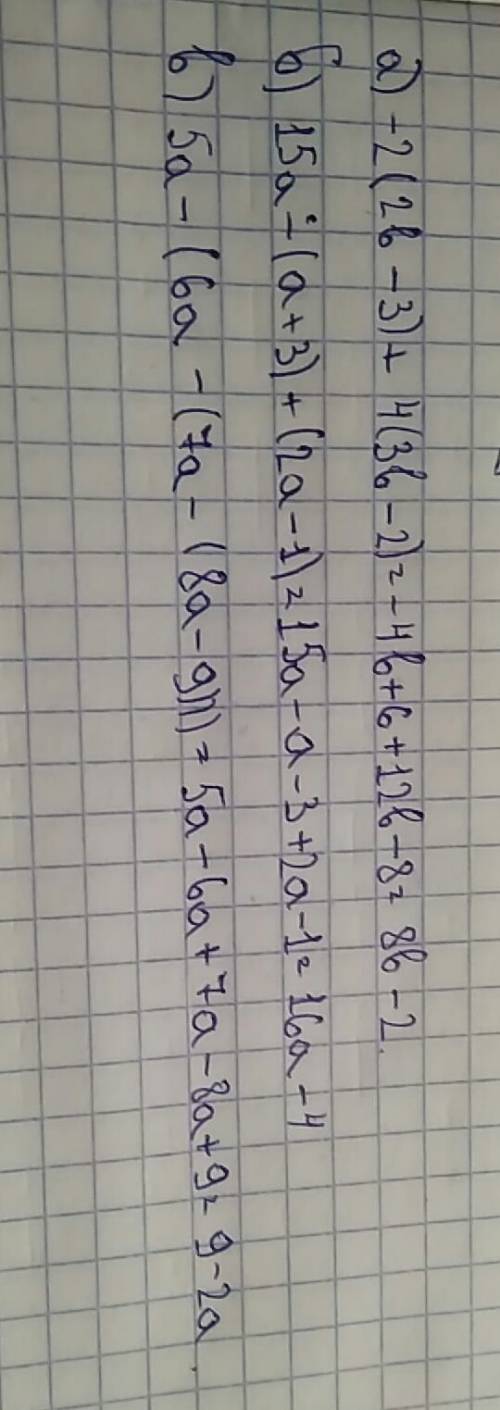 а) -2(2b-3)+4(3b-2)=-4b+6+12b-8=8b-2.
б) 15a-(a+3)+(2a-1)=15a-a-3+2a-1=16a-4
в) 5a-(6a-(7a-(8a-9)))=5a-6a+7a-8a+9=9-2a.